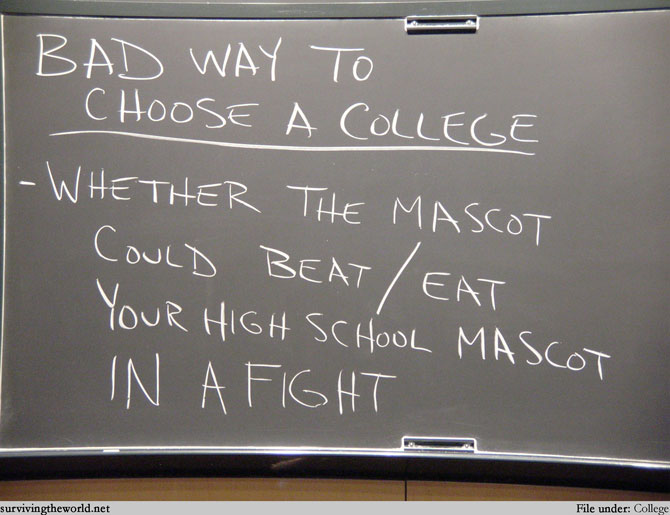 BAD WAY TO
CHOOSE A COLLEGE
- WHETHER THE MASCOT
COULD BEAT/EAT
YOUR HIGH SCHOOL MASCOT
IN A FIGHT
survivingtheworld.net File under: College